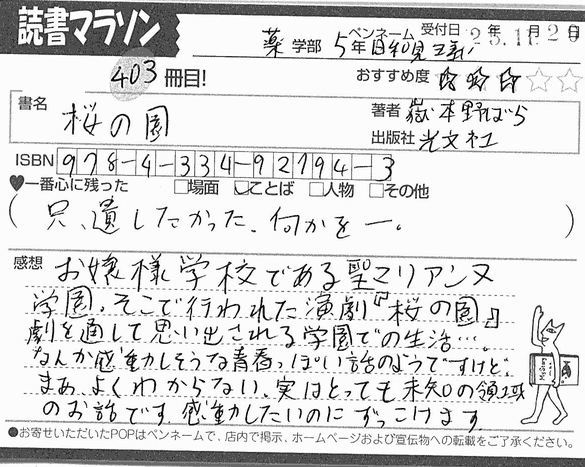 読書マラソン
薬 学部 5年 ペンネーム 日和見 受付日 23年11月20日
403冊目!
おすすめ度 ☆☆☆☆☆
書名 桜の園
著者 嶽本野ばら
出版社 光文社
ISBN 978-4-334-92794-3
♥一番心に残った □場面 □ことば □人物 □その他
(只、遺したかった、何かを―。)
感想 お嬢様学校である聖マリアンヌ
学園。そこで行われた演劇『桜の園』
劇を通して思い出される学園での生活…。
なんか感動しそうな青春っぽい話のようですけど。
まあ、よくわからない、実はとっても未知の領域
のお話です。感動したいのにずっこけます。
●お寄せいただいたPOPはペンネームで、店内で掲示、ホームページおよび宣伝物への転載をご了承ください。